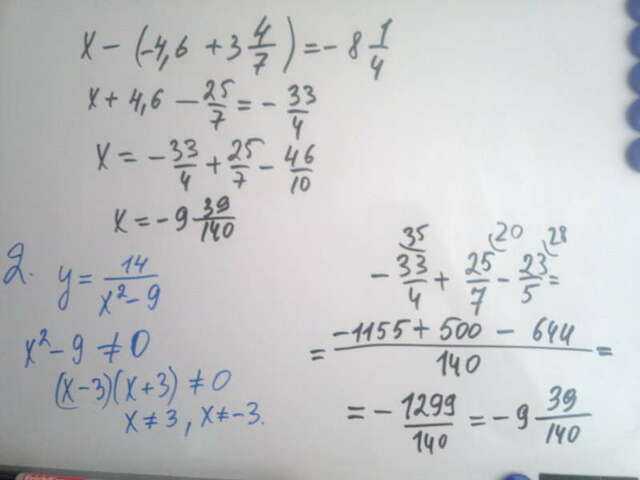 x - (-4,6 + 3 4/7) = - 8 1/4
x + 4,6 - 25/7 = - 33/4
x = - 33/4 + 25/7 - 46/10
x = - 9 39/140
2. y = 14/(x² - 9)
x² - 9 ≠ 0
(x - 3)(x + 3) ≠ 0
x ≠ 3, x ≠ -3.
35 20 28
- 33/4 + 25/7 - 23/5 =
= (-1155 + 500 - 644)/140 =
= - 1299/140 = - 9 39/140